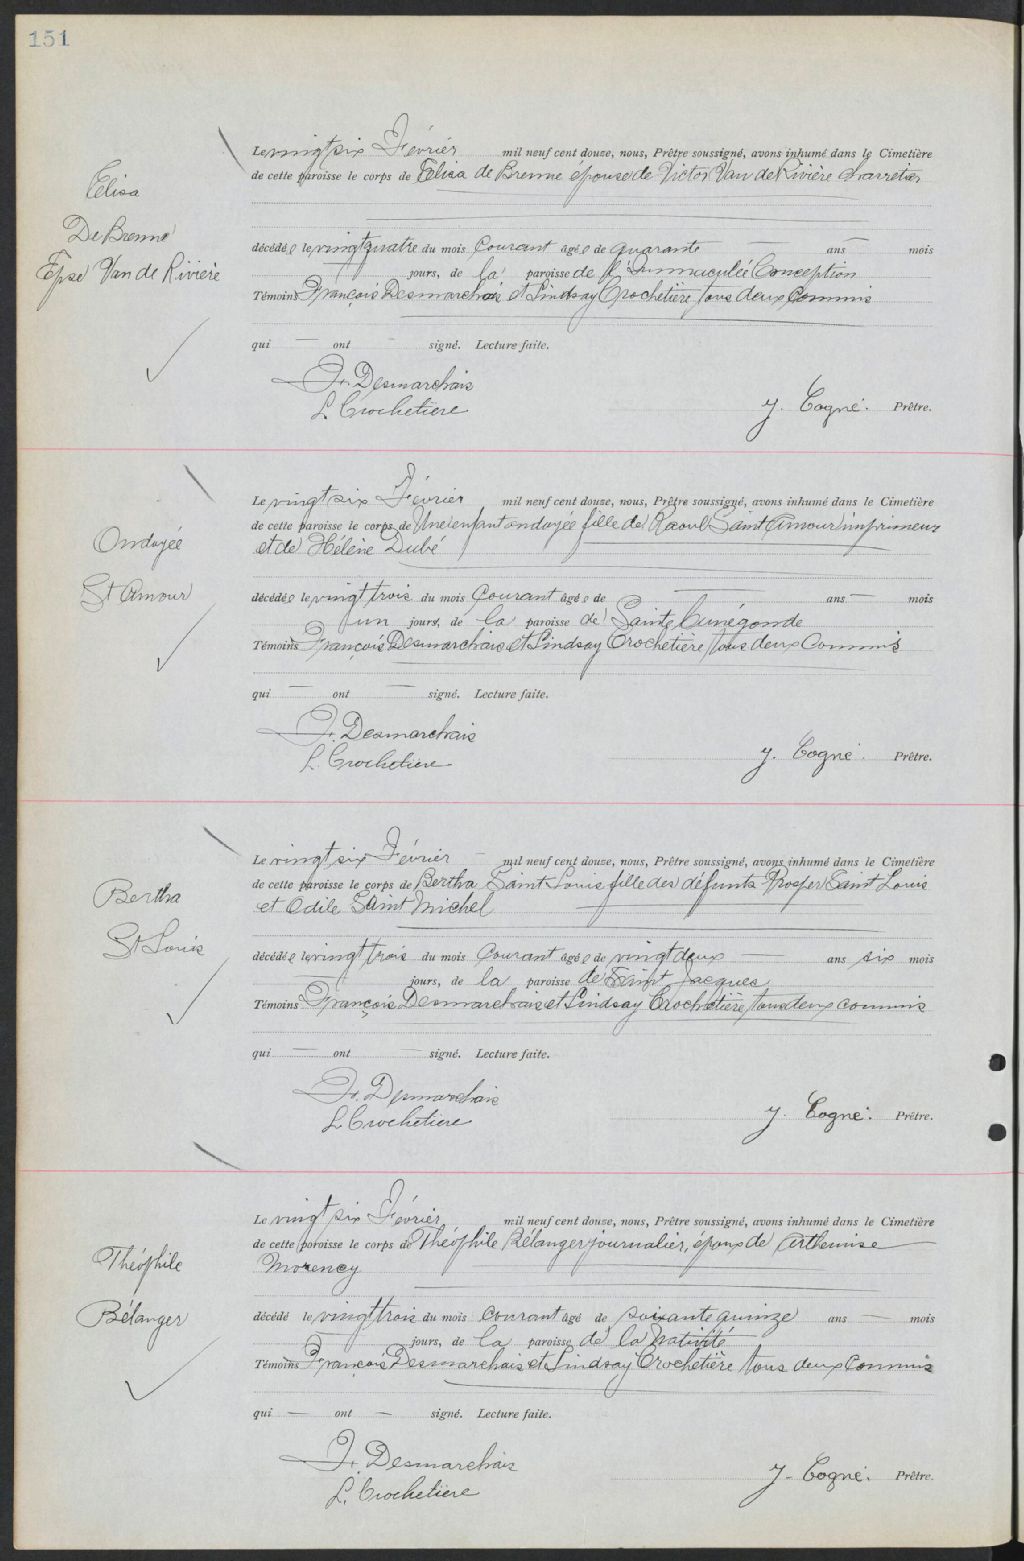 151
Elisa
De Brenne
Epse Van de Rivière
Le vingt six Février mil neuf cent douze, nous, Prêtre soussigné, avons inhumé dans le Cimetière
de cette paroisse le corps de Elisa de Brenne épouse de Victor Van de Rivière
décédée le vingt quatre du mois courant âgée de quarante — ans — mois
jours, de la paroisse de l'Immaculée Conception
Témoins François Desmarchais et Lindsay Crochetière tous deux Commis
qui — ont — signé. Lecture faite.
Fr. Desmarchais
L. Crochetiere
J. Cogné. Prêtre.
Ondoyée
St Amour
Le vingt six Février mil neuf cent douze, nous, Prêtre soussigné, avons inhumé dans le Cimetière
de cette paroisse le corps de Une enfant ondoyée fille de Raoul Saint Amour imprimeur
et de Hélène Dubé
décédée le vingt trois du mois Courant âgée de — ans — mois
un jours, de la paroisse de Sainte Cunégonde
Témoins François Desmarchais et Lindsay Crochetière tous deux Commis
qui — ont — signé. Lecture faite.
Fr. Desmarchais
L. Crochetiere
J. Cogné. Prêtre.
Bertha
St Louis
Le vingt six Février — mil neuf cent douze, nous, Prêtre soussigné, avons inhumé dans le Cimetière
de cette paroisse le corps de Bertha Saint Louis fille des défunts Prosper Saint Louis
et Odile Saint Michel
décédée le vingt trois du mois courant âgée de vingt deux — ans six mois
jours, de la paroisse de Saint Jacques
Témoins François Desmarchais et Lindsay Crochetière tous deux commis
qui — ont — signé. Lecture faite.
Fr. Desmarchais
L. Crochetiere
J. Cogné. Prêtre.
Théophile
Bélanger
Le vingt six Février mil neuf cent douze, nous, Prêtre soussigné, avons inhumé dans le Cimetière
de cette paroisse le corps de Théophile Bélanger journalier, époux de Arthemise
Morency
décédé le vingt trois du mois courant âgé de soixante quinze ans — mois
jours, de la paroisse de la Nativité
Témoins François Desmarchais et Lindsay Crochetière tous deux Commis
qui — ont — signé. Lecture faite.
Fr. Desmarchais
L. Crochetiere
J. Cogné. Prêtre.